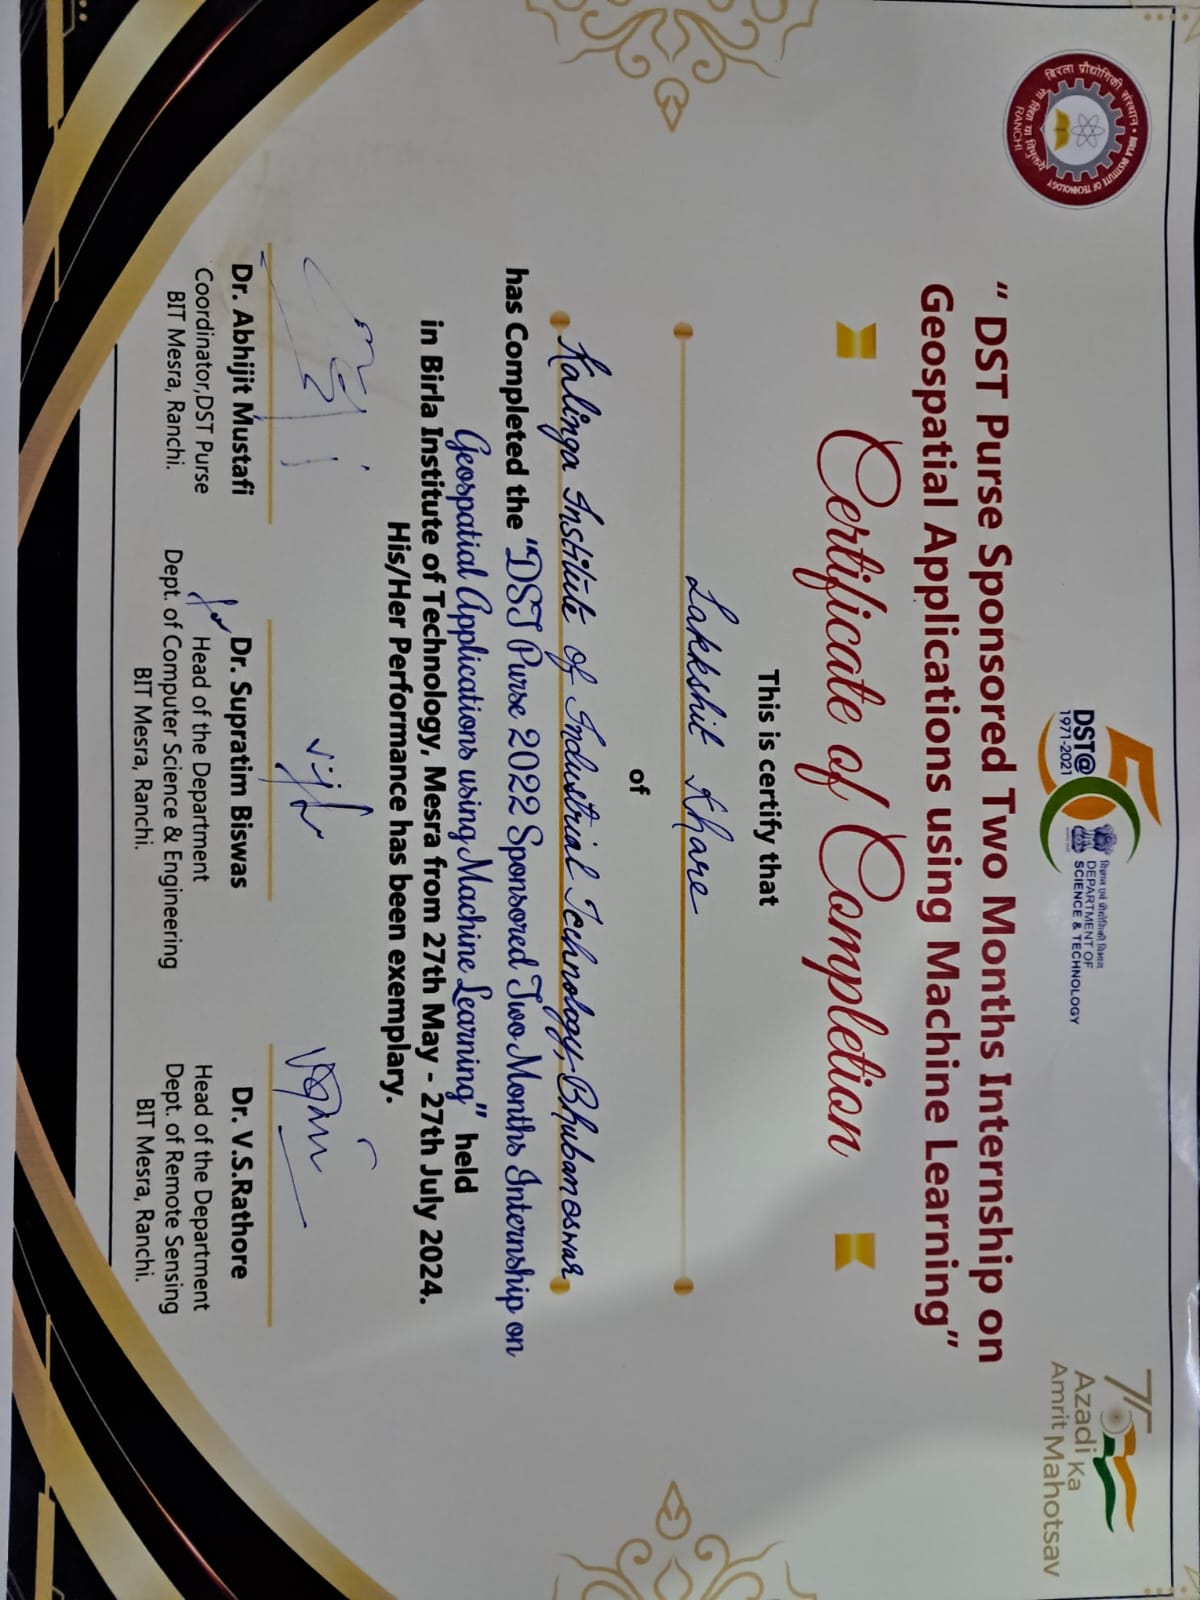 बिरला प्रौद्योगिकी संस्थान • BIRLA INSTITUTE OF TECHNOLOGY
सा विद्या या विमुक्तये
RANCHI
50
DST@
1971-2021
विज्ञान एवं प्रौद्योगिकी विभाग
DEPARTMENT OF
SCIENCE & TECHNOLOGY
75
Azadi Ka
Amrit Mahotsav
“ DST Purse Sponsored Two Months Internship on
Geospatial Applications using Machine Learning”
Certificate of Completion
This is certify that
Lakkshit Khare
of
Kalinga Institute of Industrial Technology, Bhubaneswar
has Completed the "DST Purse 2022 Sponsored Two Months Internship on
Geospatial Applications using Machine Learning" held
in Birla Institute of Technology, Mesra from 27th May - 27th July 2024.
His/Her Performance has been exemplary.
Dr. Abhijit Mustafi
Coordinator,DST Purse
BIT Mesra, Ranchi.
Dr. Supratim Biswas
Head of the Department
Dept. of Computer Science & Engineering
BIT Mesra, Ranchi.
Dr. V.S.Rathore
Head of the Department
Dept. of Remote Sensing
BIT Mesra, Ranchi.